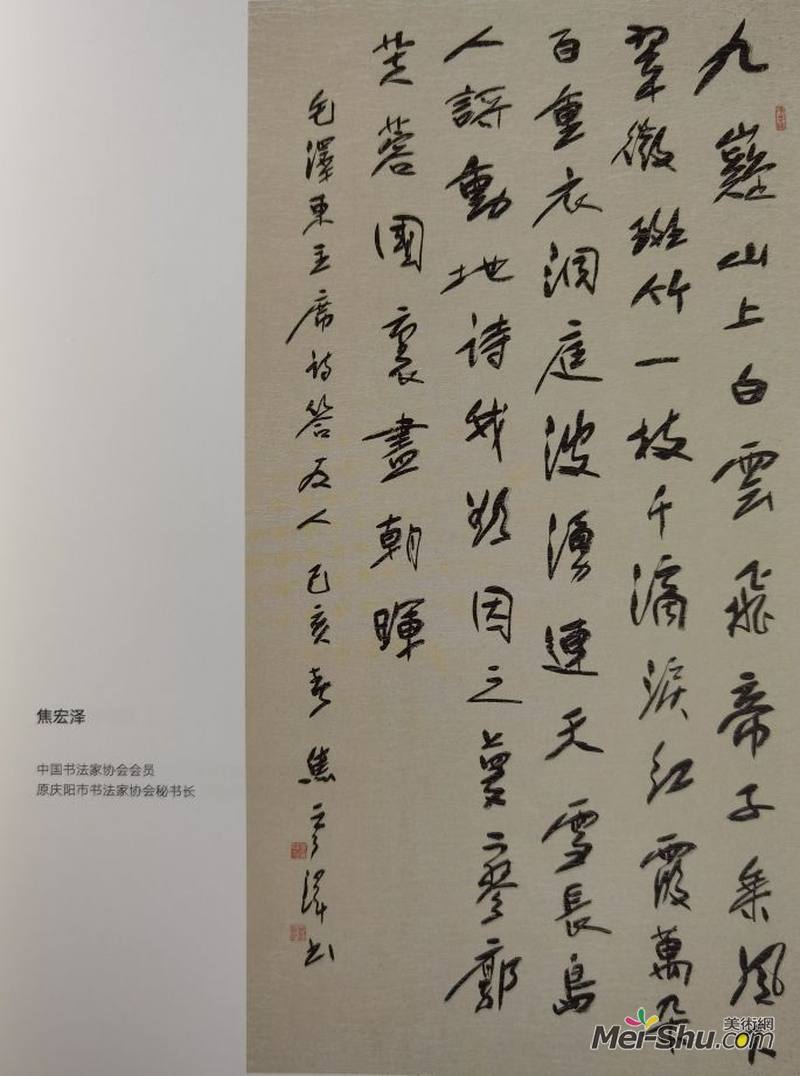 九嶷山上白雲飛帝子乘風下
翠微斑竹一枝千滴淚紅霞萬朵
百重衣洞庭波湧連天雪長島
人謌動地詩我欲因之夢寥廓
芙蓉國裏盡朝暉
毛澤东主席诗答友人己亥春焦宏泽书
焦宏泽
中国书法家协会会员
原庆阳市书法家协会秘书长
美術網
Mei-Shu.com